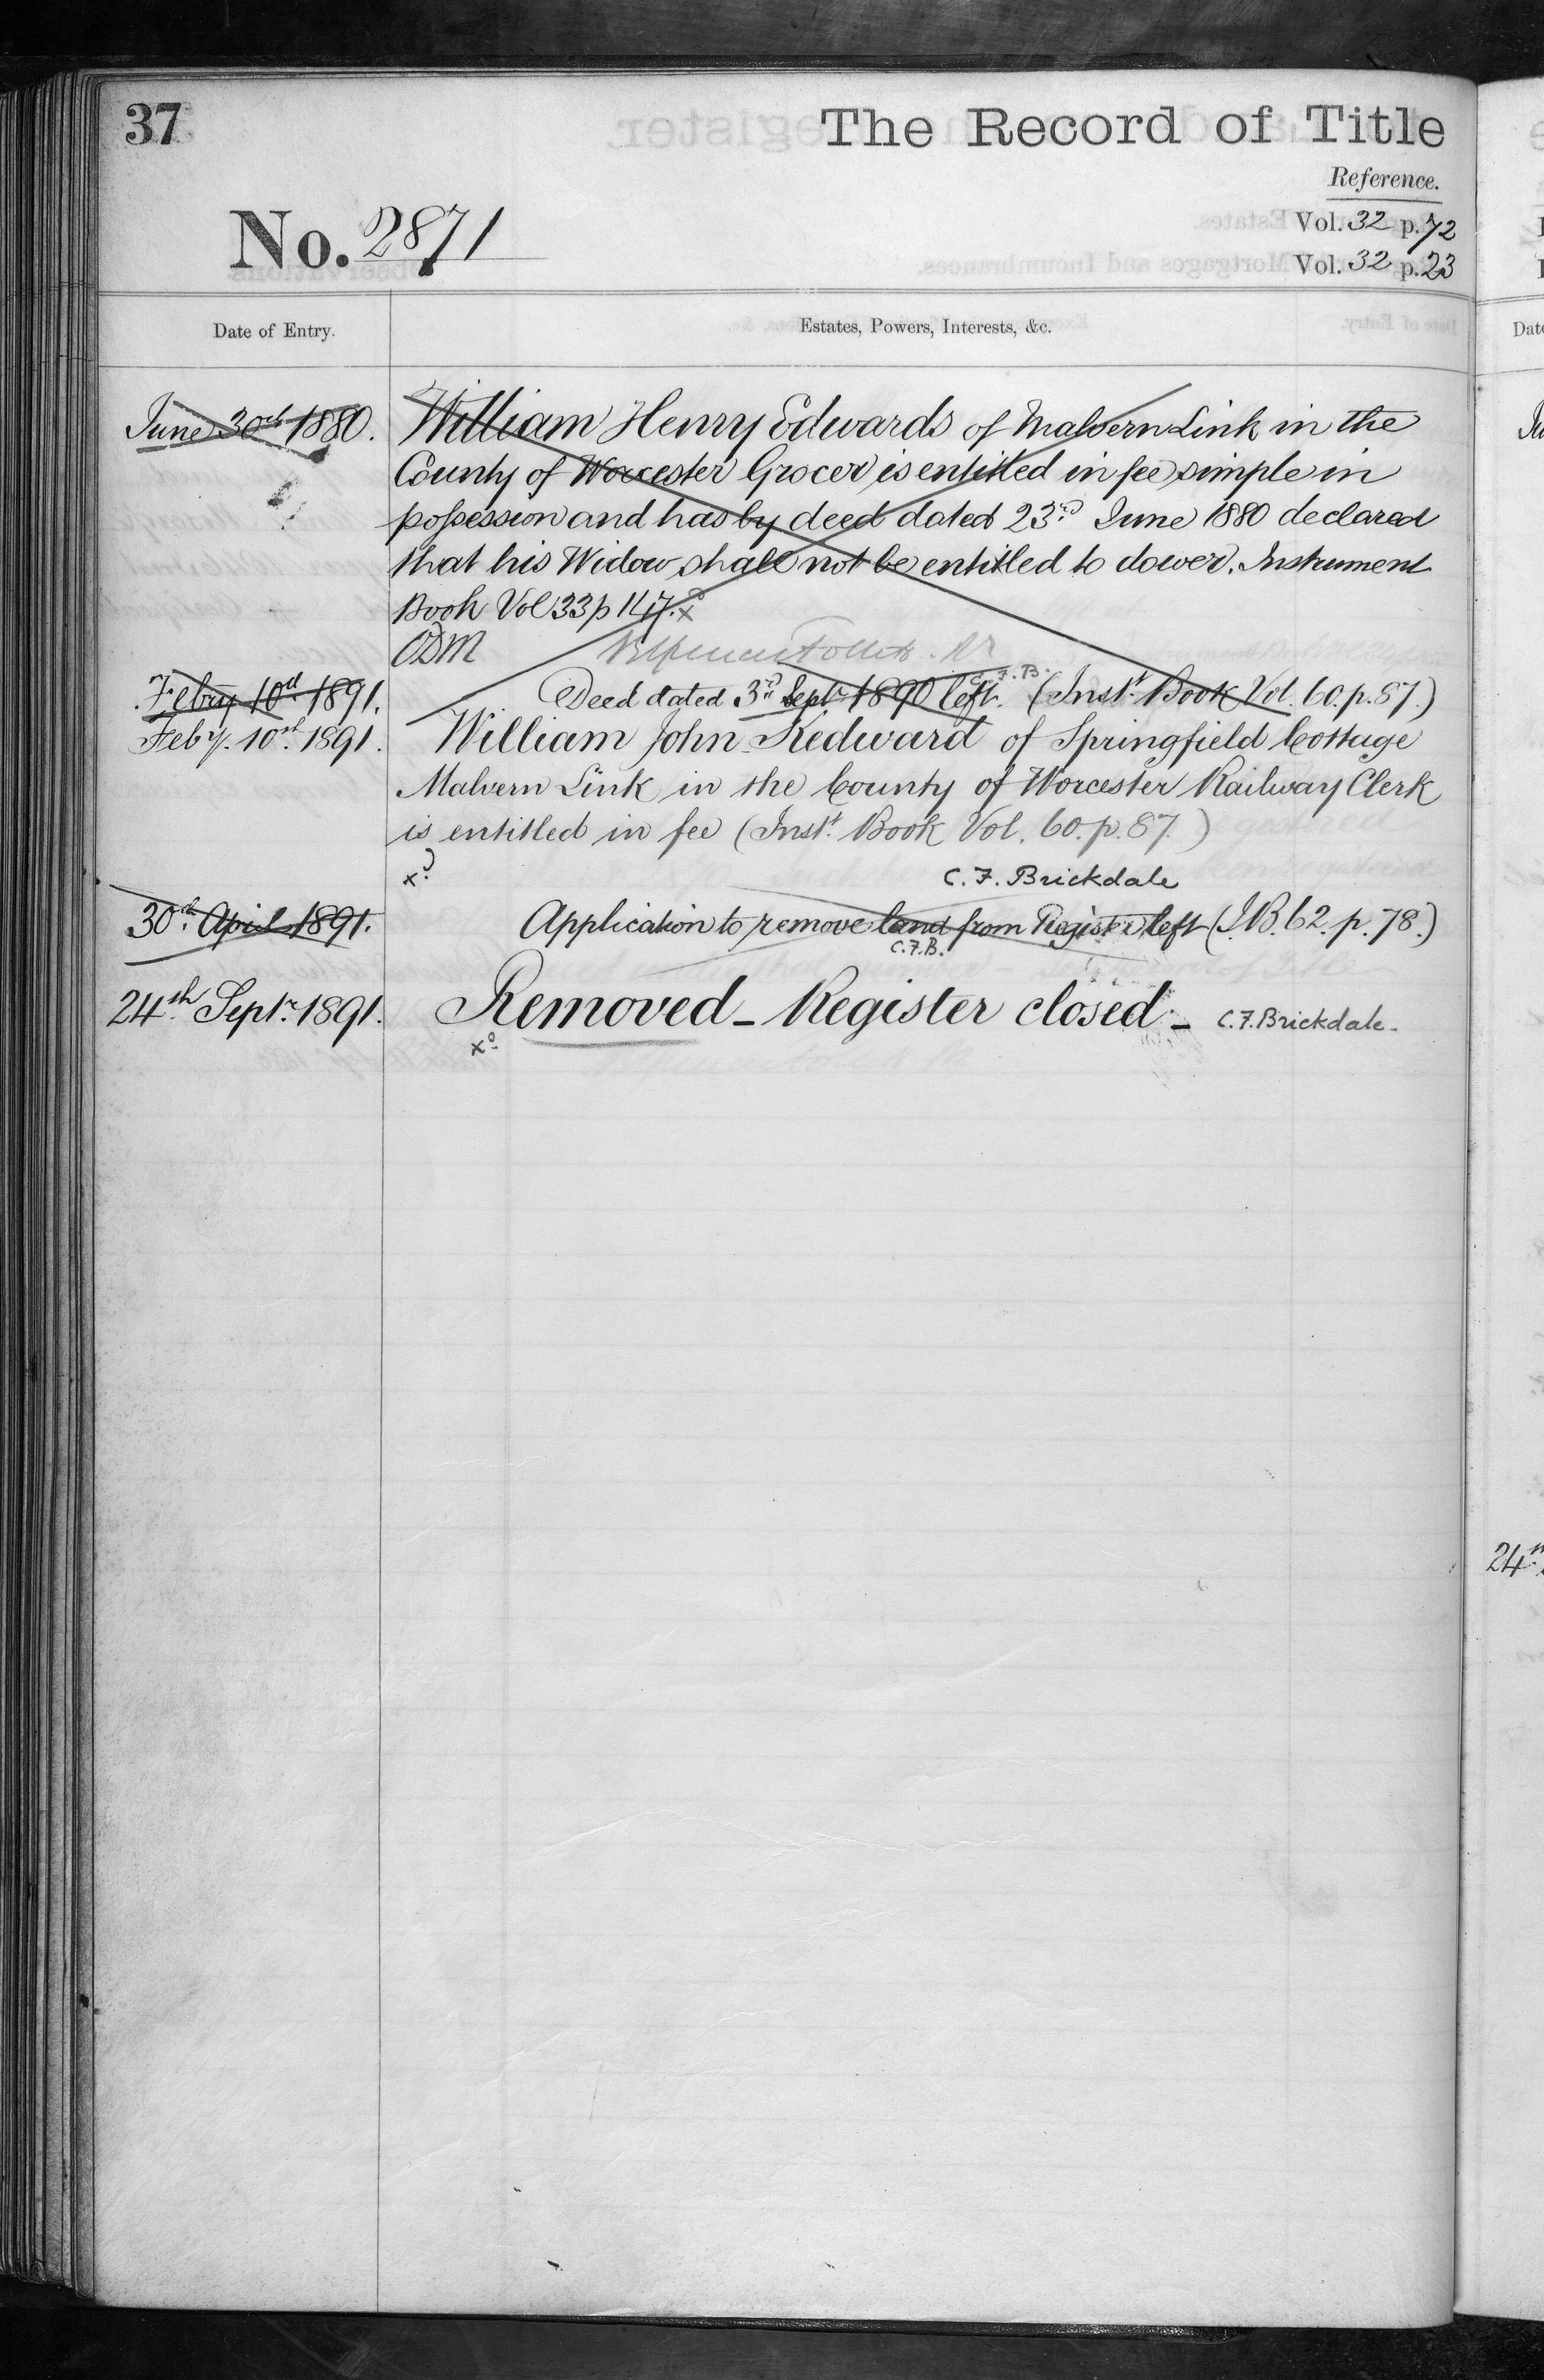 37
The Record of Title
Reference.
No. 2871
Vol. 32 p. 72
Vol. 32 p. 23
Date of Entry.
Estates, Powers, Interests, &c.
June 30th 1880.
William Henry Edwards of Malvern Link in the
County of Worcester Grocer is entitled in fee simple in
possession and has by deed dated 23rd June 1880 declared
that his Widow shall not be entitled to dower. Instrument
Book Vol 33 p 147. xd
C. F. B.
Feby 10th 1891.
Deed dated 3rd Septr 1890 left. (Inst. Book Vol. 60. p. 87.)
Feby. 10th. 1891.
William John Kedward of Springfield Cottage
Malvern Link in the County of Worcester Railway Clerk
is entitled in fee (Inst. Book Vol. 60. p. 87.)
xd
C. F. Brickdale
30th. April 1891.
Application to remove land from Register left (I.B. 62. p. 78.)
C.F.B.
24th Septr. 1891.
Removed - Register closed - C. F. Brickdale -
xd
Date
24th